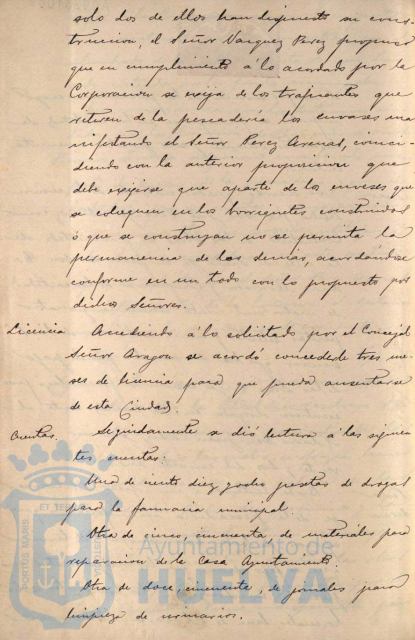 solo dos de ellos han dispuesto su cons-
trucción, el Señor Vazquez Perez propuso
que en cumplimiento á lo acordado por la
Corporacion se exija de los traficantes que
retiren de la pescaderia los envases ma
nifestando el Señor Perez Arenas, coinci-
diendo con la anterior proposicion que
debe exijirse que aparte de los envases que
se coloquen en los borriquetes construidos
ó que se construyan no se permita la
permanencia de los demas, acordándose
conforme en un todo con lo propuesto por
dichos Señores.
Licencia Accediendo á lo solicitado por el Concejal
Señor Aragon se acordó concederle tres me-
ses de licencia para que pueda ausentarse
de esta Ciudad.
Cuentas. Seguidamente se dió lectura á las siguien
tes cuentas:
Una de ciento diez y ocho pesetas de drogas
para la farmacia municipal.
Otra de cinco, cincuenta, de materiales para
reparacion de la Casa Ayuntamiento.
Otra de doce, cincuenta, de jornales para
limpieza de urinarios.
Ayuntamiento de
HUELVA
PORTUS MARIS ET TER